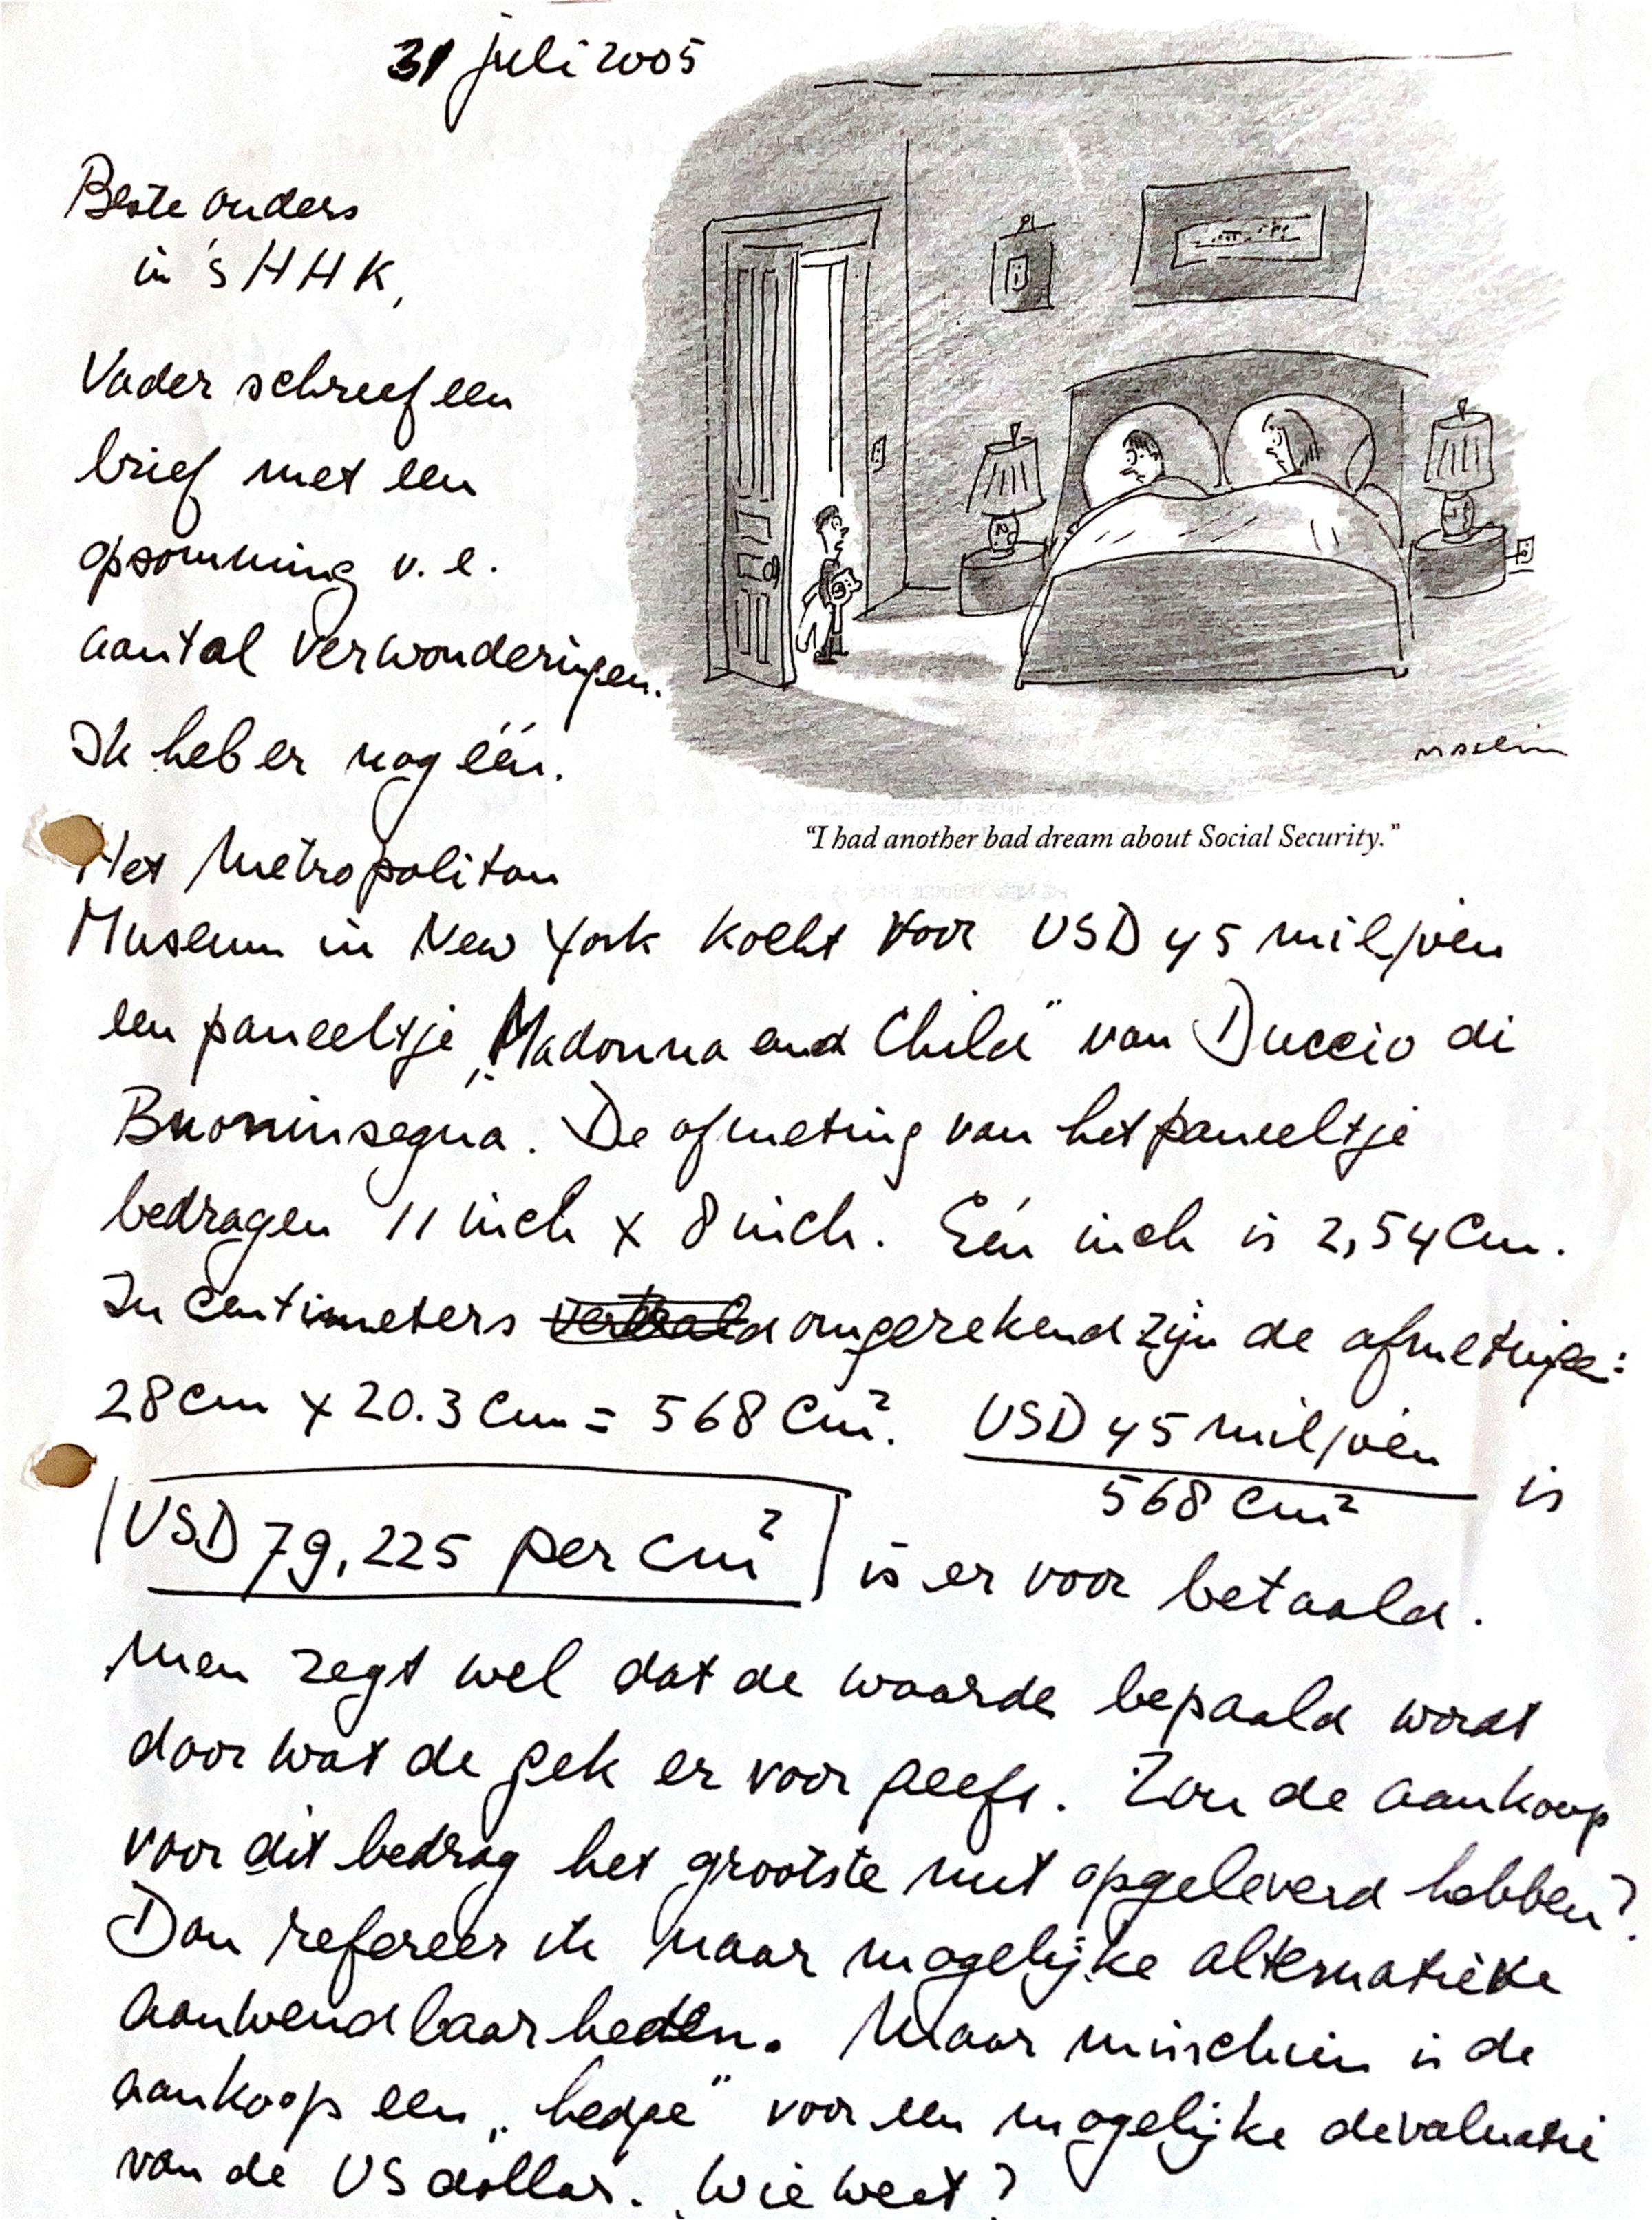 31 juli 2005
Beste ouders
in 's HHK,
Vader schreef een
brief met een
opsomming v.e.
aantal verwonderingen.
Ik heb er nog één.
"I had another bad dream about Social Security."
Het Metropolitan
Museum in New York kocht voor USD 45 miljoen
een paneeltje „Madonna and Child" van Duccio di
Buoninsegna. De afmeting van het paneeltje
bedragen 11 inch x 8 inch. Eén inch is 2,54 cm.
In centimeters omgerekend zijn de afmetingen:
28 cm x 20.3 cm = 568 cm². USD 45 miljoen
568 cm² is
USD 79,225 per cm² is er voor betaald.
Men zegt wel dat de waarde bepaald wordt
door wat de gek er voor geeft. Zou de aankoop
voor dit bedrag het grootste nut opgeleverd hebben?
Dan refereer ik naar mogelijke alternatieve
aanwendbaarheden. Maar misschien is de
aankoop een „hedge" voor een mogelijke devaluatie
van de US dollar. Wie weet?